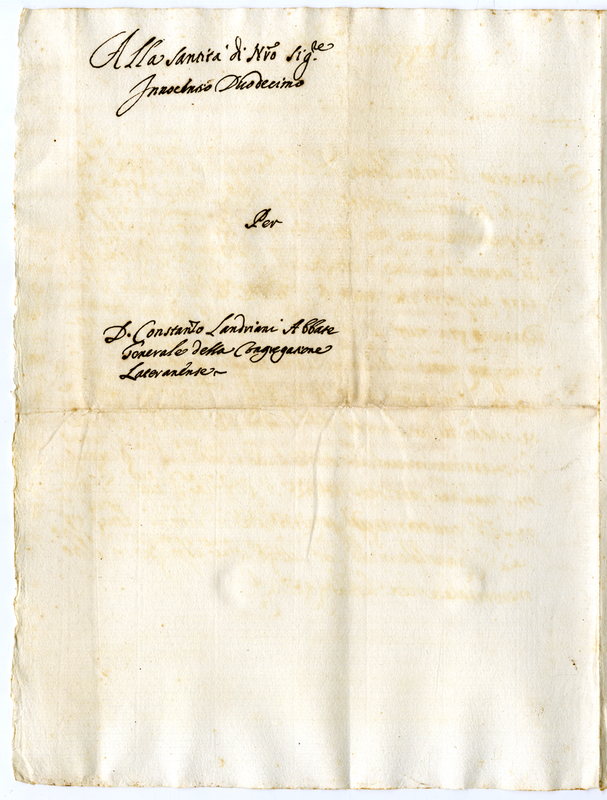 Alla Santità di Nrõ Sig.re
Innocenzo Duodecimo
Per
D. Constanto Landriani Abbate
Generale della Congregatione
Lateranense